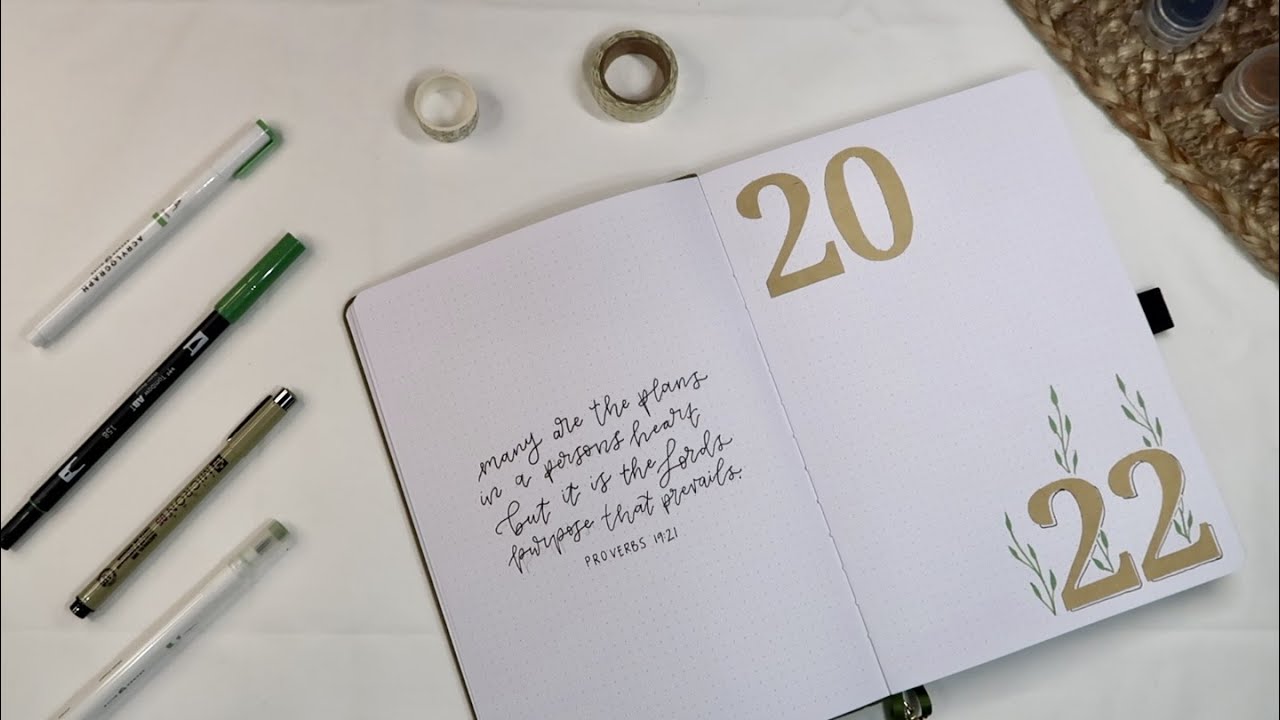 many are the plans
in a persons heart
but it is the Lords
purpose that prevails.
PROVERBS 19:21
20
22
ACRYLOGRAPH
Tombow ABT
158
MICRON